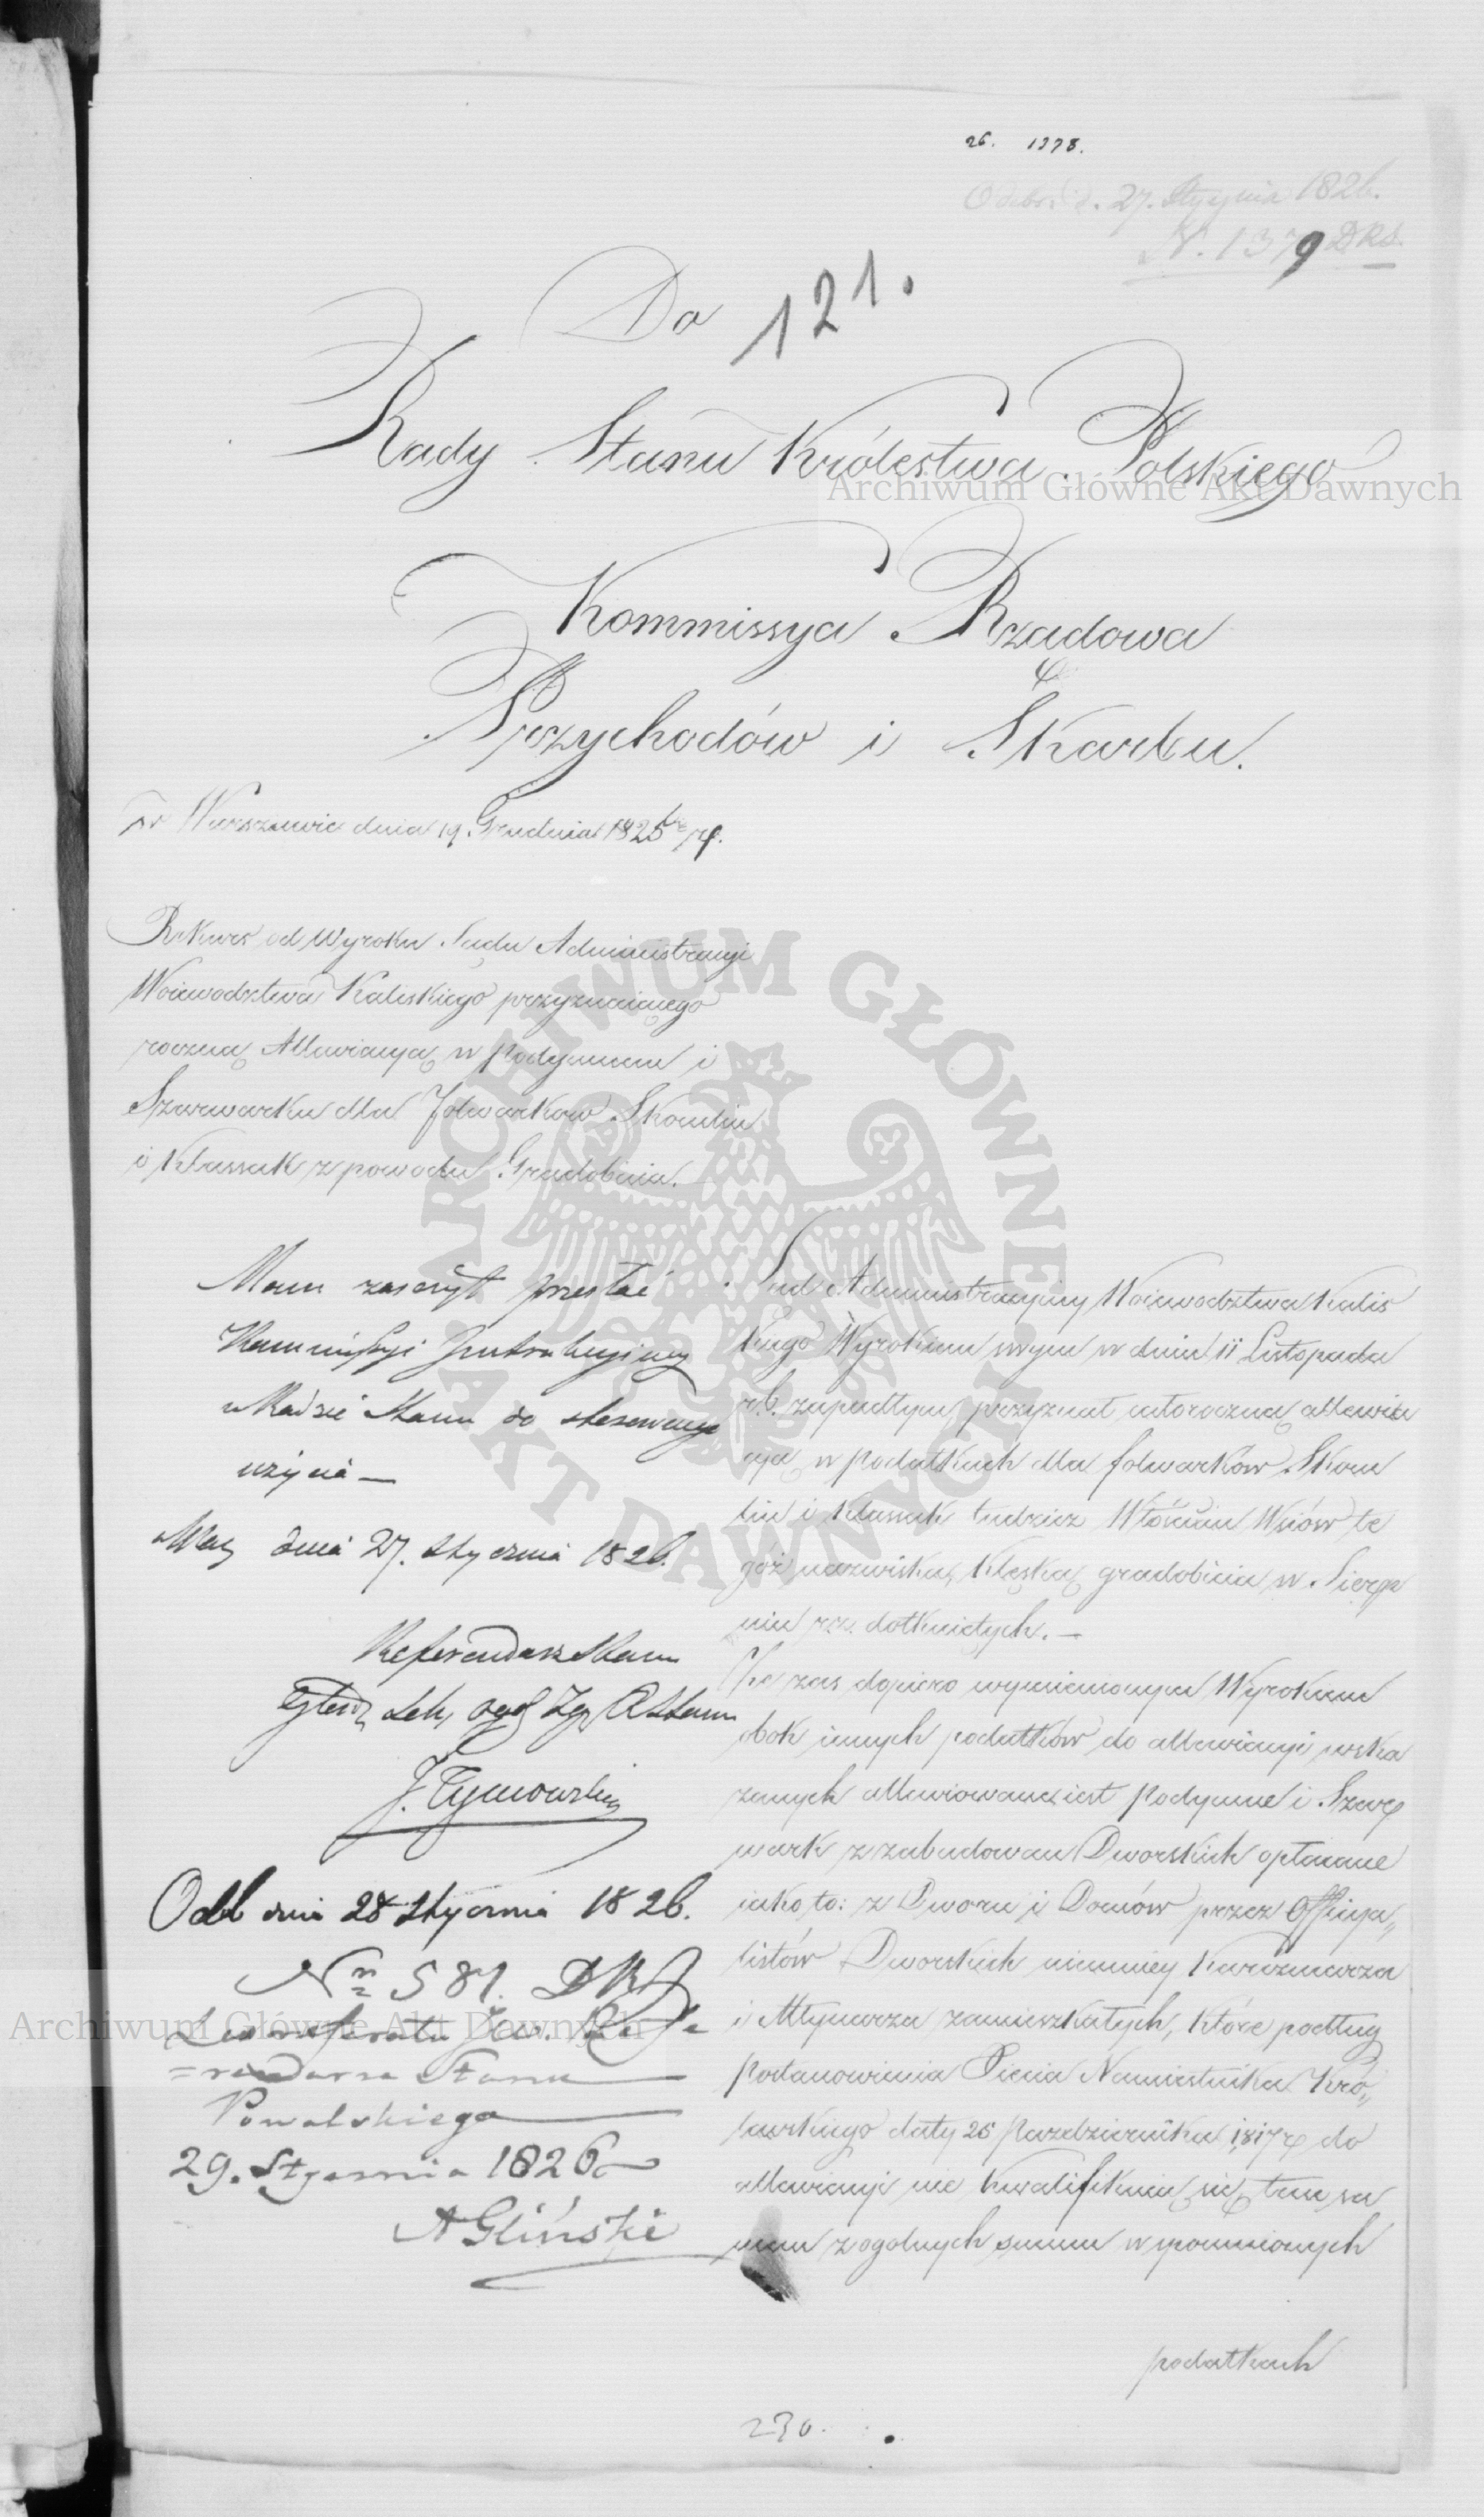 26. 1378.
Odebr. d. 27. Stycznia 1826.
N. 1379 DRS.
121.
Do
Rady Stanu Królestwa Polskiego
Kommissya Rządowa
Przychodów i Skarbu.
w Warszawie dnia 19. Grudnia 1825 r.
Rekurs od Wyroku Sądu Administracyi
Woiewodztwa Kaliskiego przyznaiącego
roczną Allewiacyą w Podymnem i
Szarwarku dla Folwarków Skomlin
i Klassak z powodu Gradobicia.
Mam zaszczyt przesłać
Kommissyi Instrukcyiney
w Radzie Stanu do stosownego
użycia —
dnia 27. Stycznia 1826.
Referendarz Stanu
J. Tymowski
Odb dnia 28 Stycznia 1826.
Nr 581. DRS
Do referatu JW. Refe
=rendarza Stanu
Powalskiego
29. Stycznia 1826
A Gliński
Sąd Administracyiny Woiewodztwa Kalis
kiego Wyrokiem swym w dniu 11 Listopada
r.b. zapadłym przyznał całoroczną allewia
cyą w podatkach dla folwarków Skom
lin i Klassak tudzież Włościan Wsiów te
goż nazwiska, klęską gradobicia w Sierp
niu r.b. dotkniętych. —
Że zaś dopiero wymienionym Wyrokiem
obok innych podatków do allewiacyi wska
zanych allewiowane iest Podymne i Szar
wark z zabudowan Dworskich opłacane
iako to: z Dworu i Domów przez Officya„
listów Dworskich niemniey Karczmarza
i Młynarza zamieszkałych, które podług
Postanowienia Xięcia Namiestnika Kró„
lewskiego daty 25 Października 1817 r do
allewiacyi nie kwalifikuią się, tem sa
mem z ogolnych summ wspomnionych
podatkach
230.
Archiwum Główne Akt Dawnych
ARCHIWUM GŁÓWNE AKT DAWNYCH
Archiwum Główne Akt Dawnych